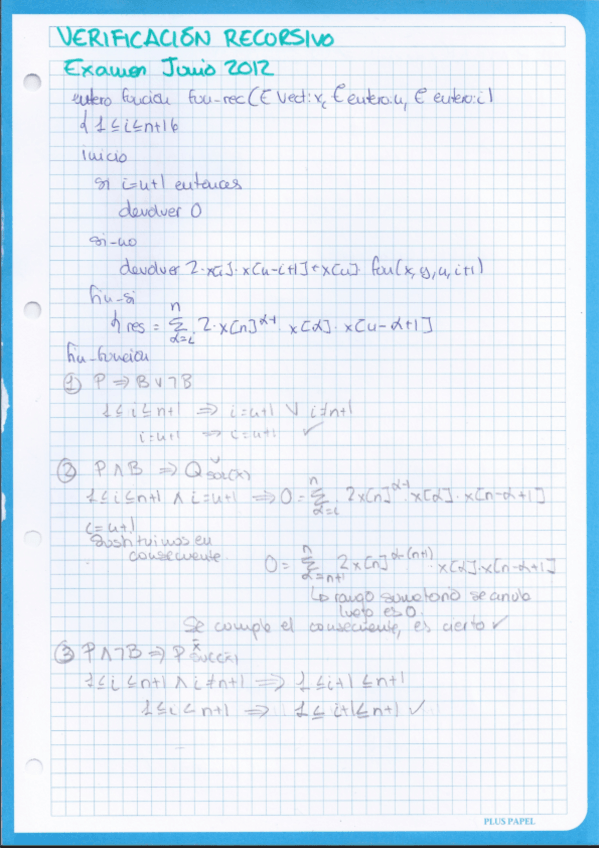 VERIFICACIÓN RECURSIVO
Examen Junio 2012
entero función fun-rec(E Vect:x, E entero:n, E entero:i)
{1≤i≤n+1}
inicio
si i=n+1 entonces
devolver 0
si-no
devolver 2·x[i]·x[n-i+1]+x[n]·fun(x,y,n,i+1)
fin-si
{res = Σ α=i n 2·x[n]^α-i · x[α]·x[n-α+1]
fin-función
① P ⇒ B ∨ ¬B
1≤i≤n+1 ⇒ i=n+1 ∨ i≠n+1
i=n+1 ⇒ i=n+1 ✓
② P∧B ⇒ Q sol(x)
1≤i≤n+1 ∧ i=n+1 ⇒ 0 = Σ α=i n 2x[n]^α-i · x[α]·x[n-α+1]
i=n+1
Sustituimos en
consecuente.
0 = Σ α=n+1 n 2x[n]^α-(n+1) · x[α]·x[n-α+1]
↳ rango sumatorio se anula
luego es 0.
Se cumple el consecuente, es cierto ✓
③ P∧¬B ⇒ P x̄ succ(x̄)
1≤i≤n+1 ∧ i≠n+1 ⇒ 1≤i+1≤n+1
1≤i<n+1 ⇒ 1≤i+1≤n+1 ✓
PLUS PAPEL